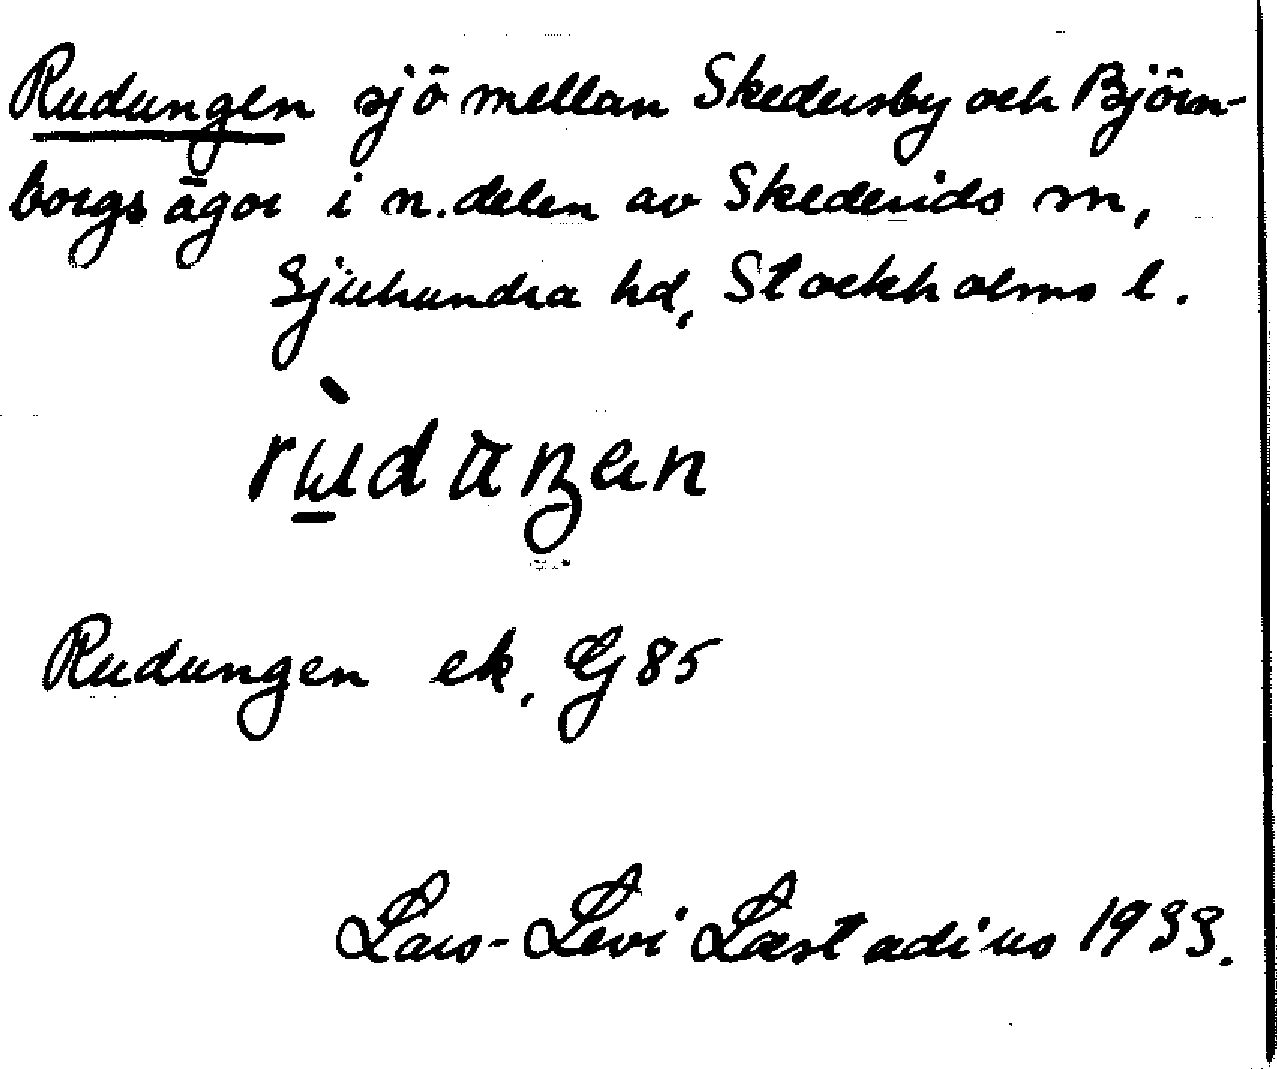 Rudungen sjö mellan Skedersby och Björn-
borgs ägor i n. delen av Skederids sn,
Sjuhundra hd, Stockholms l.
Rudungen ek. G 85
Lars-Levi Læstadius 1933.